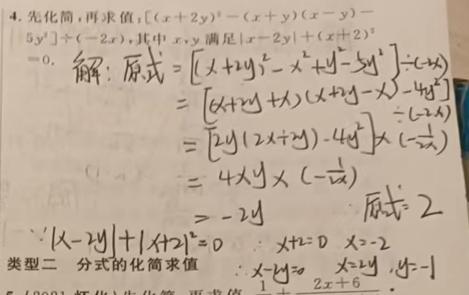 4. 先化简,再求值:[(x+2y)²-(x+y)(x-y)-
5y²]÷(-2x),其中 x,y 满足|x-2y|+(x+2)²
=0.
解:原式=[(x+2y)²-x²+y²-5y²]÷(-2x)
=[(x+2y+x)(x+2y-x)-4y²]
÷(-2x)
=[2y(2x+2y)-4y²]×(-1/2x)
=4xy×(-1/2x)
=-2y ∴原式=2
∵|x-2y|+|x+2|²=0 ∴x+2=0 x=-2
类型二 分式的化简求值
∴x-2y=0 x=2y ,y=-1
先化简,再求值 1 + 2x+6